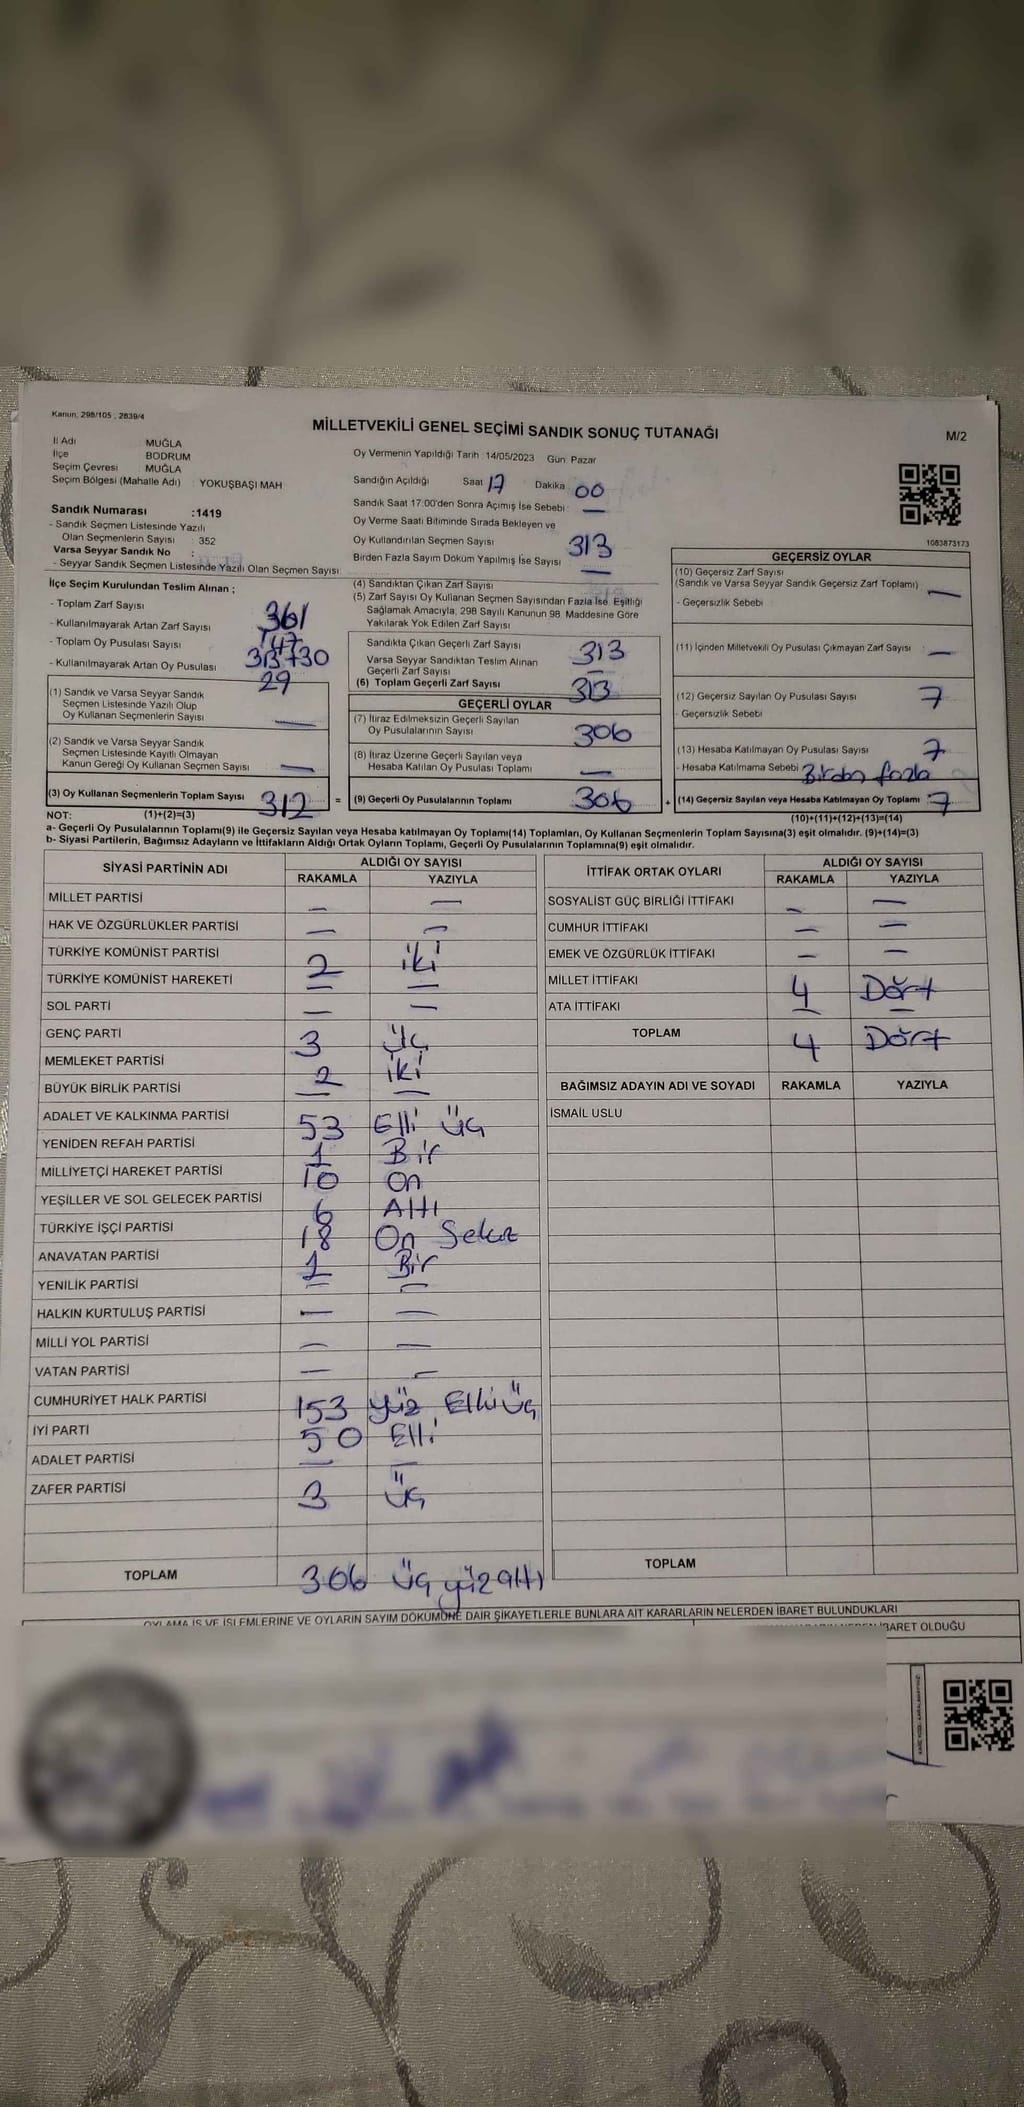 Kanun: 298/105 , 2839/4
MİLLETVEKİLİ GENEL SEÇİMİ SANDIK SONUÇ TUTANAĞI
M/2
İl Adı MUĞLA
İlçe BODRUM
Seçim Çevresi MUĞLA
Seçim Bölgesi (Mahalle Adı) YOKUŞBAŞI MAH
Oy Vermenin Yapıldığı Tarih 14/05/2023 Gün: Pazar
Sandığın Açıldığı Saat 17 Dakika 00
Sandık Saat 17:00'den Sonra Açımış İse Sebebi: —
Oy Verme Saati Bitiminde Sırada Bekleyen ve
Oy Kullandırılan Seçmen Sayısı 313
Birden Fazla Sayım Döküm Yapılmış İse Sayısı —
1083873173
Sandık Numarası :1419
- Sandık Seçmen Listesinde Yazılı
Olan Seçmenlerin Sayısı : 352
Varsa Seyyar Sandık No :
- Seyyar Sandık Seçmen Listesinde Yazılı Olan Seçmen Sayısı:
İlçe Seçim Kurulundan Teslim Alınan ;
- Toplam Zarf Sayısı 361
- Kullanılmayarak Artan Zarf Sayısı 147
- Toplam Oy Pusulası Sayısı 730
- Kullanılmayarak Artan Oy Pusulası 29
(1) Sandık ve Varsa Seyyar Sandık
Seçmen Listesinde Yazılı Olup
Oy Kullanan Seçmenlerin Sayısı —
(2) Sandık ve Varsa Seyyar Sandık
Seçmen Listesinde Kayıtlı Olmayan
Kanun Gereği Oy Kullanan Seçmen Sayısı —
(3) Oy Kullanan Seçmenlerin Toplam Sayısı 312 =
(4) Sandıktan Çıkan Zarf Sayısı
(5) Zarf Sayısı Oy Kullanan Seçmen Sayısından Fazla İse, Eşitliği
Sağlamak Amacıyla, 298 Sayılı Kanunun 98. Maddesine Göre
Yakılarak Yok Edilen Zarf Sayısı
Sandıkta Çıkan Geçerli Zarf Sayısı 313
Varsa Seyyar Sandıktan Teslim Alınan
Geçerli Zarf Sayısı —
(6) Toplam Geçerli Zarf Sayısı 313
GEÇERLİ OYLAR
(7) İtiraz Edilmeksizin Geçerli Sayılan
Oy Pusulalarının Sayısı 306
(8) İtiraz Üzerine Geçerli Sayılan veya
Hesaba Katılan Oy Pusulası Toplamı —
(9) Geçerli Oy Pusulalarının Toplamı 306 +
GEÇERSİZ OYLAR
(10) Geçersiz Zarf Sayısı
(Sandık ve Varsa Seyyar Sandık Geçersiz Zarf Toplamı) —
- Geçersizlik Sebebi
(11) İçinden Milletvekili Oy Pusulası Çıkmayan Zarf Sayısı —
(12) Geçersiz Sayılan Oy Pusulası Sayısı 7
- Geçersizlik Sebebi
(13) Hesaba Katılmayan Oy Pusulası Sayısı 7
- Hesaba Katılmama Sebebi Birden fazla
(14) Geçersiz Sayılan veya Hesaba Katılmayan Oy Toplamı 7
NOT: (1)+(2)=(3) (10)+(11)+(12)+(13)=(14)
a- Geçerli Oy Pusulalarının Toplamı(9) ile Geçersiz Sayılan veya Hesaba katılmayan Oy Toplamı(14) Toplamları, Oy Kullanan Seçmenlerin Toplam Sayısına(3) eşit olmalıdır. (9)+(14)=(3)
b- Siyasi Partilerin, Bağımsız Adayların ve İttifakların Aldığı Ortak Oyların Toplamı, Geçerli Oy Pusulalarının Toplamına(9) eşit olmalıdır.
SİYASİ PARTİNİN ADI ALDIĞI OY SAYISI
RAKAMLA YAZIYLA
MİLLET PARTİSİ — —
HAK VE ÖZGÜRLÜKLER PARTİSİ — —
TÜRKİYE KOMÜNİST PARTİSİ 2 iki
TÜRKİYE KOMÜNİST HAREKETİ — —
SOL PARTİ — —
GENÇ PARTİ 3 Üç
MEMLEKET PARTİSİ 2 iki
BÜYÜK BİRLİK PARTİSİ — —
ADALET VE KALKINMA PARTİSİ 53 Elli Üç
YENİDEN REFAH PARTİSİ 1 Bir
MİLLİYETÇİ HAREKET PARTİSİ 10 On
YEŞİLLER VE SOL GELECEK PARTİSİ 6 Altı
TÜRKİYE İŞÇİ PARTİSİ 18 On Sekiz
ANAVATAN PARTİSİ 1 Bir
YENİLİK PARTİSİ — —
HALKIN KURTULUŞ PARTİSİ — —
MİLLİ YOL PARTİSİ — —
VATAN PARTİSİ — —
CUMHURİYET HALK PARTİSİ 153 Yüz Elli Üç
İYİ PARTİ 50 Elli
ADALET PARTİSİ — —
ZAFER PARTİSİ 3 Üç
TOPLAM 306 Üç yüz altı
İTTİFAK ORTAK OYLARI ALDIĞI OY SAYISI
RAKAMLA YAZIYLA
SOSYALİST GÜÇ BİRLİĞİ İTTİFAKI — —
CUMHUR İTTİFAKI — —
EMEK VE ÖZGÜRLÜK İTTİFAKI — —
MİLLET İTTİFAKI 4 Dört
ATA İTTİFAKI — —
TOPLAM 4 Dört
BAĞIMSIZ ADAYIN ADI VE SOYADI RAKAMLA YAZIYLA
İSMAİL USLU
TOPLAM
OYLAMA İŞ VE İŞLEMLERİNE VE OYLARIN SAYIM DÖKÜMÜNE DAİR ŞİKAYETLERLE BUNLARA AİT KARARLARIN NELERDEN İBARET BULUNDUKLARI
İBARET OLDUĞU